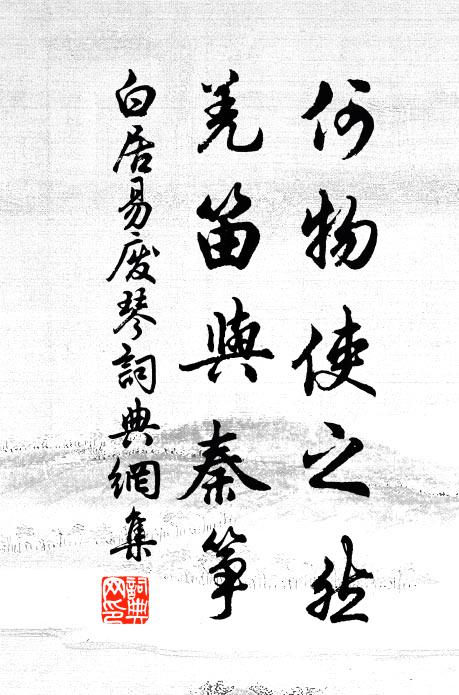 何物使之然
羌笛與秦箏
白居易廢琴詞典網集
詞典網印